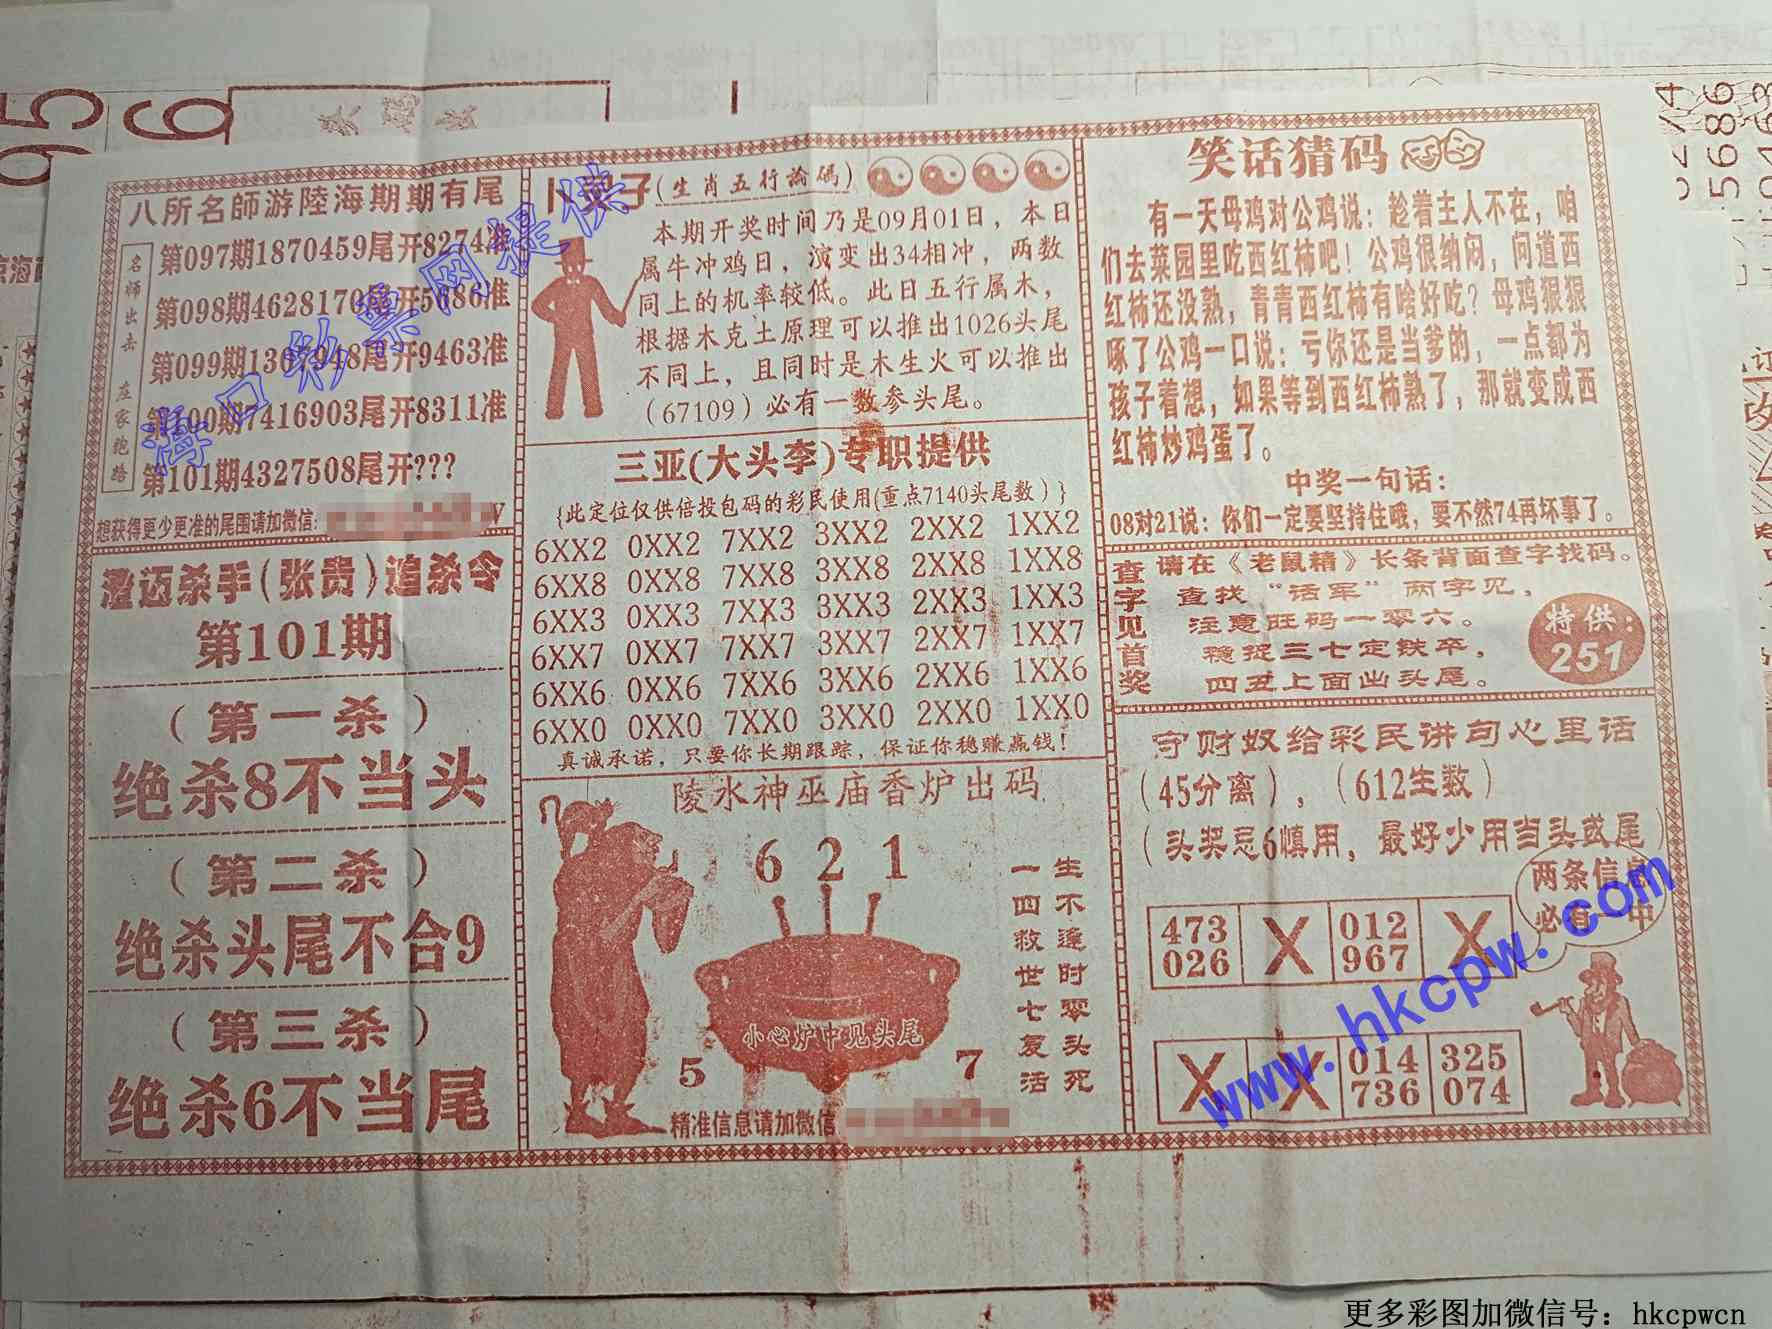 八所名師游陸海期期有尾
名师出击 在家跑路
第097期1870459尾开8274准
第098期4628170尾开5686准
第099期1367948尾开9463准
第100期7416903尾开8311准
第101期4327508尾开???
想获得更少更准的尾围请加微信:
澄迈杀手(张贵)追杀令
第101期
(第一杀)
绝杀8不当头
(第二杀)
绝杀头尾不合9
(第三杀)
绝杀6不当尾
卜叉子(生肖五行論碼)
本期开奖时间乃是09月01日，本日
属牛冲鸡日，演变出34相冲，两数
同上的机率较低。此日五行属木，
根据木克土原理可以推出1026头尾
不同上，且同时是木生火可以推出
(67109)必有一数参头尾。
三亚(大头李)专职提供
{此定位仅供倍投包码的彩民使用(重点7140头尾数)}
6XX2 0XX2 7XX2 3XX2 2XX2 1XX2
6XX8 0XX8 7XX8 3XX8 2XX8 1XX8
6XX3 0XX3 7XX3 3XX3 2XX3 1XX3
6XX7 0XX7 7XX7 3XX7 2XX7 1XX7
6XX6 0XX6 7XX6 3XX6 2XX6 1XX6
6XX0 0XX0 7XX0 3XX0 2XX0 1XX0
真诚承诺，只要你长期跟踪，保证你稳赚赢钱！
陵水神巫庙香炉出码
6 2 1
小心炉中见头尾
5 7
生不逢时零头死
一四救世七复活
精准信息请加微信
笑话猜码
有一天母鸡对公鸡说：趁着主人不在，咱
们去菜园里吃西红柿吧！公鸡很纳闷，问道西
红柿还没熟，青青西红柿有啥好吃？母鸡狠狠
啄了公鸡一口说：亏你还是当爹的，一点都为
孩子着想，如果等到西红柿熟了，那就变成西
红柿炒鸡蛋了。
中奖一句话：
08对21说：你们一定要坚持住哦，要不然74再坏事了。
查字见首奖
请在《老鼠精》长条背面查字找码。
查找“话军”两字见，
注意旺码一零六。
稳捉三七定铁卒，
四五上面出头尾。
特供：
251
守财奴给彩民讲句心里话
(45分离)，(612生数)
(头奖忌6慎用，最好少用当头或尾)
两条信息
必有一中
473 X 012 X
026 967
X X 014 325
736 074
海口彩票网提供
www.hkcpw.com
更多彩图加微信号：hkcpwcn
95
6
5686